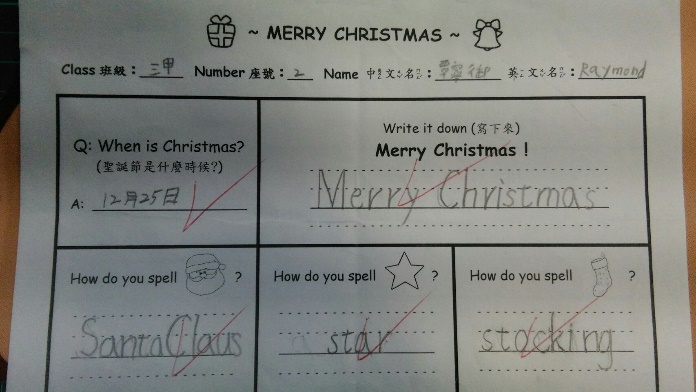 ~ MERRY CHRISTMAS ~
Class 班級：三甲 Number 座號：2 Name 中文名： 英文名：Raymond
Q: When is Christmas?
(聖誕節是什麼時候?)
A: 12月25日
Write it down (寫下來)
Merry Christmas !
Merry Christmas
How do you spell ?
Santa Claus
How do you spell ?
star
How do you spell ?
stocking